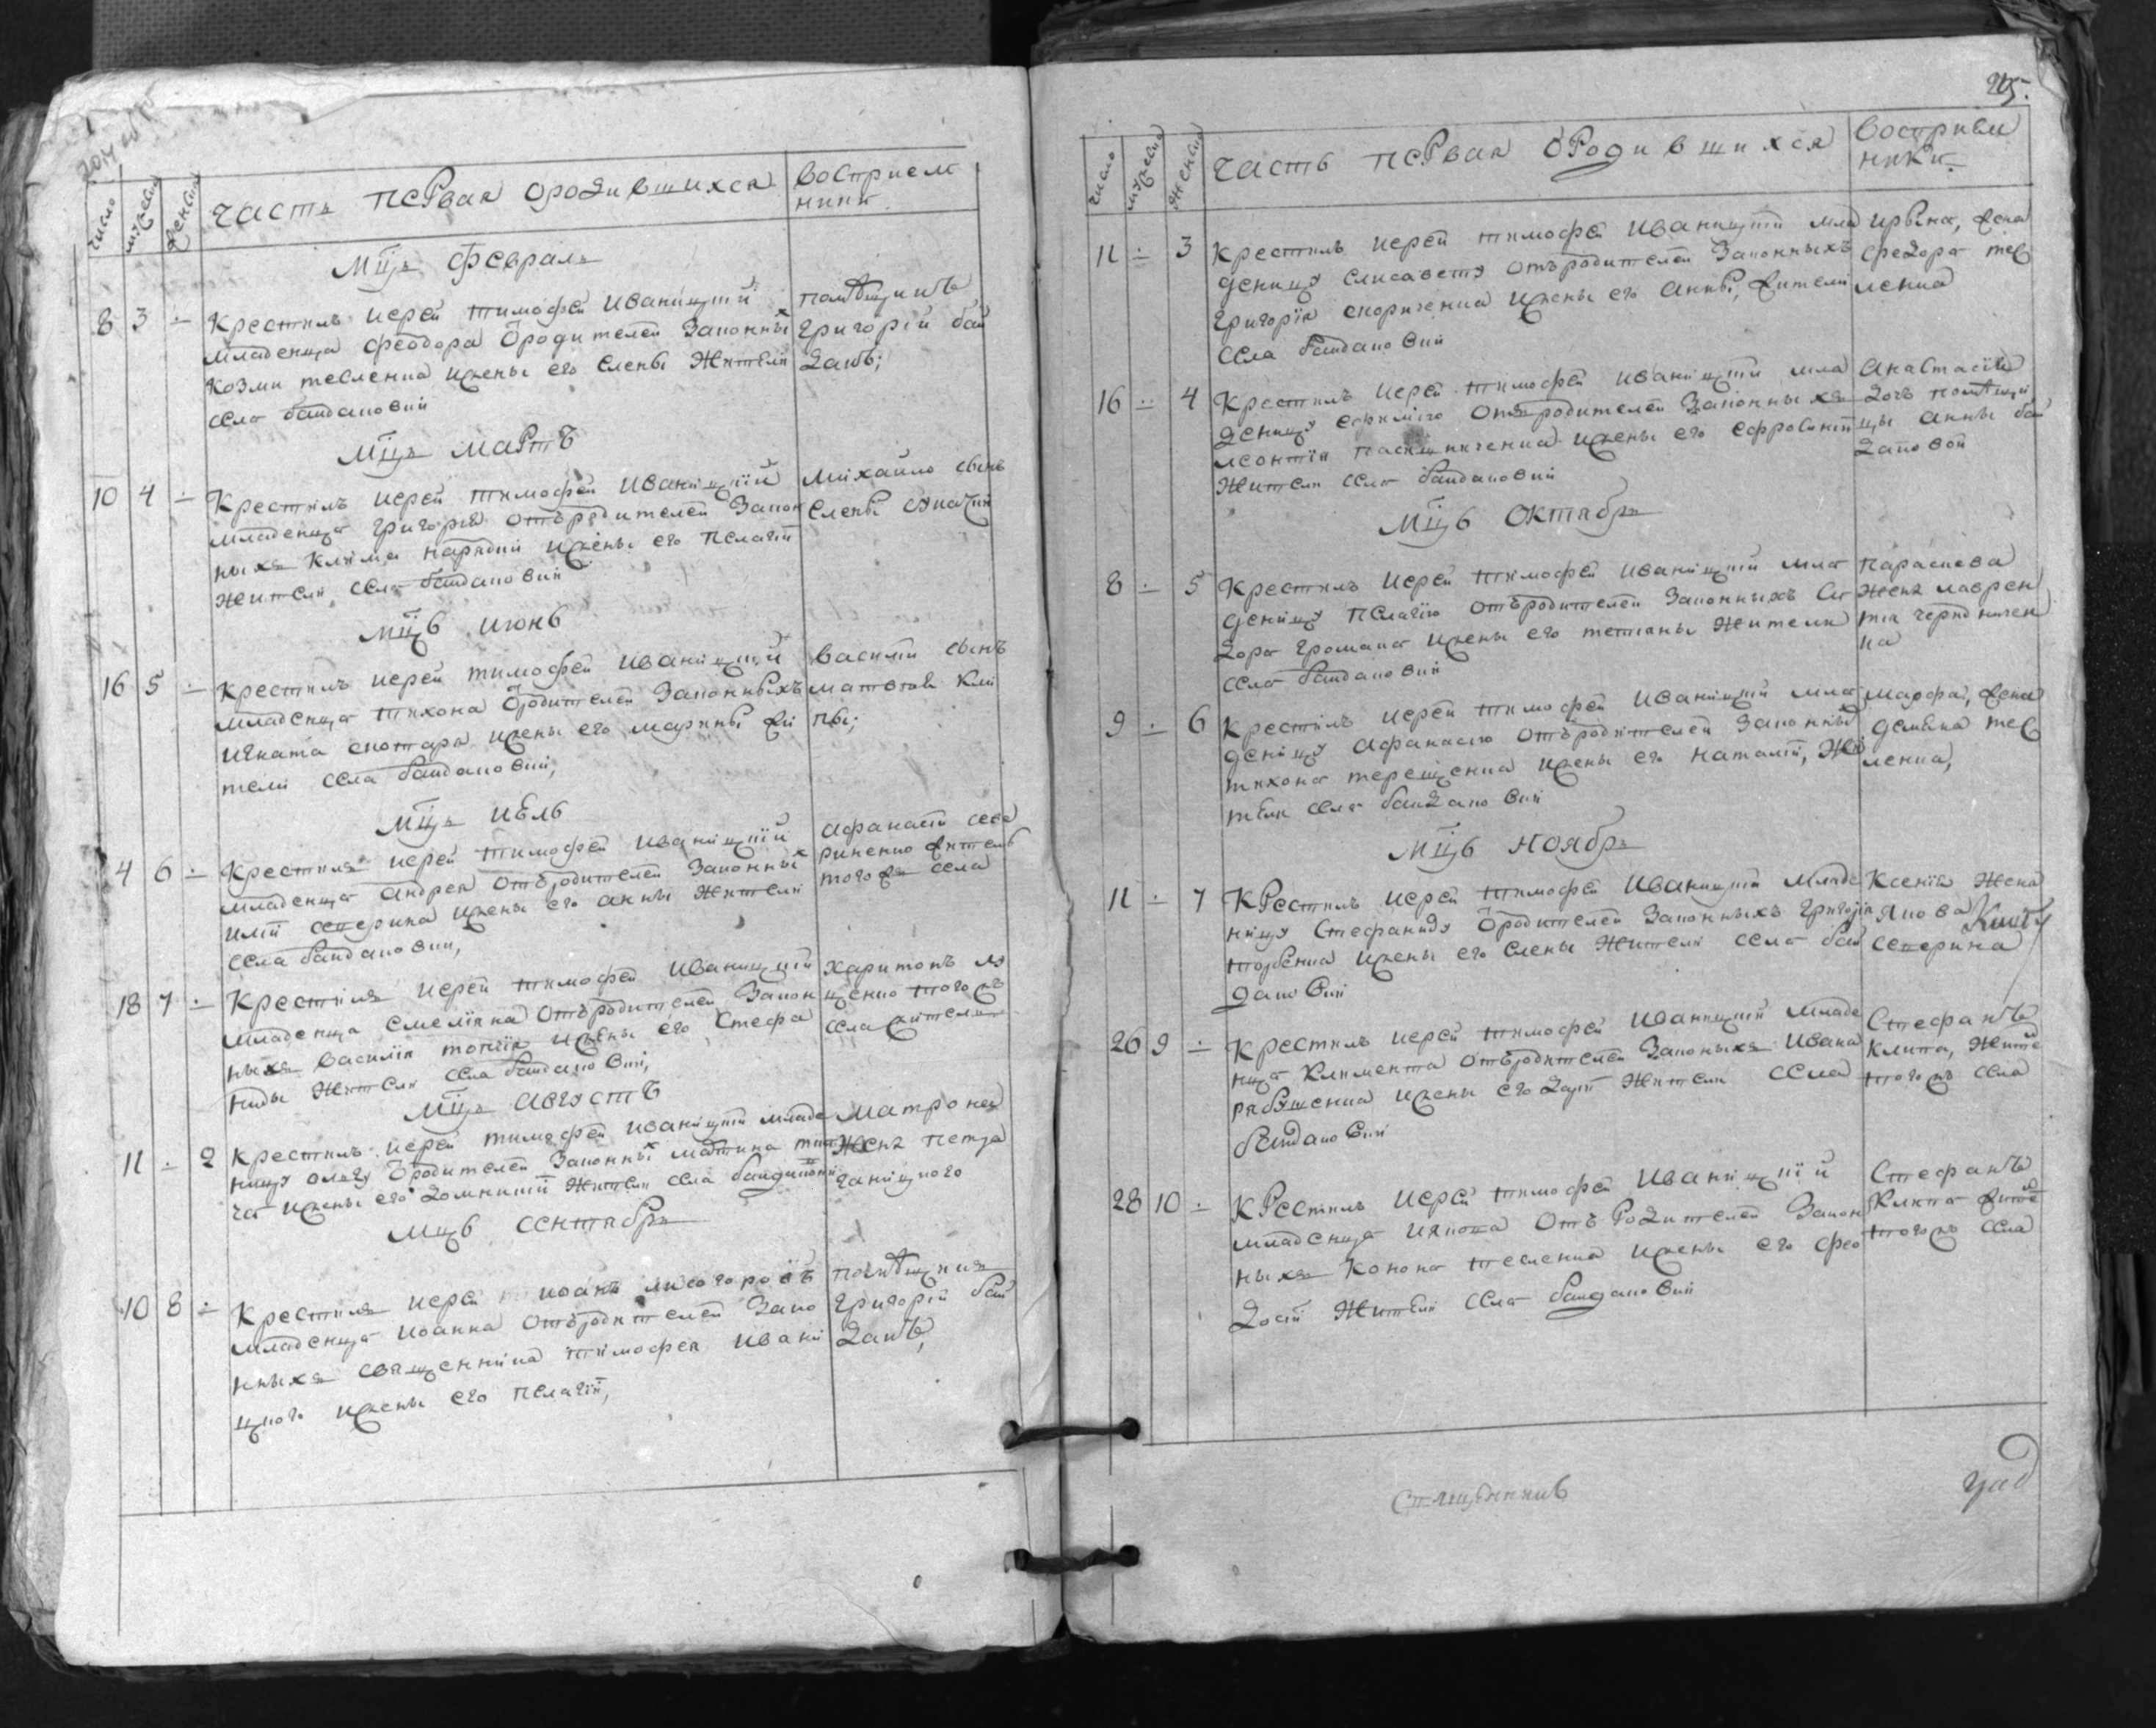 число
мужескъ
женскъ
часть пеРвая ородившихся
восприем
ники
мцъ Февраль
8 3 ÷ Крестилъ иерей тимофей Иваницкий
младенца феодора Ѿродителей Законных
Козми тесленка ижены его елены Жители
села байдаковки
помѣщикъ
григорій бай
дакъ;
мцъ маРтъ
10 4 ÷ Крестилъ иерей тимофей Иваницкій
младенца григория отъродителей Закон
ныхъ Клима ижены его пелагіи
жители села байдаковки
михайло сынъ
елены
мцъ июнь
16 5 ÷ Крестилъ иерей тимофей Иваницкий
младенца тихона Ѿродителей Законныхъ
игната скотаря ижены его марины жи
тели села байдаковки,
василий сынъ
матвѣя кли
пы;
мцъ июль
4 6 ÷ Крестилъ иерей тимофей Иваницкій
младенца андрея отъродителей Законных
илии сеперика ижены его анны жители
села байдаковки,
афанасий сепе
риченко житель
тогожъ села
18 7 ÷ Крестилъ иерей тимофей Иваницкий
младенца емелияна отъродителей Закон
ныхъ василия ижены его Стефа
ниды Жители села байдаковки,
харитонъ
щенко тогожъ
села житель
мцъ августъ
11 ÷ 2 Крестилъ иерей тимофей Иваницкий младе
ницу олгу Ѿродителей Законных
ижены его домникии Жители села байдаковки
матрона
Жена петра
ганицкого
мцъ сентябрь
10 8 ÷ Крестилъ иерей иоанъ
младенца иоанна отъродителей Зако
нныхъ священника тимофея ивани
цкого ижены его пелагіи,
помѣщикъ
григорій бай
дакъ,
205.
число
мужескъ
женскъ
часть пеРвая оРодившихся
восприем
ники
11 ÷ 3 Крестилъ иерей тимофей Иваницкий мла
деницу елисавету отъродителей Законныхъ
григорія скориченка ижены его анны, жители
села байдаковки
ирына, жена
федора тес
ленка
16 ÷ 4 Крестилъ иерей тимофей Иваницкий мла
деницу ефимию отъродителей Законныхъ
леонтия ижены его ефросинии
Жители села байдаковки
анастасия
дочь помѣщи
цы анны бай
даковой
мцъ октябрь
8 ÷ 5 Крестилъ иерей тимофей Иваницкий мла
деницу пелагию отъродителей Законныхъ Си
дора громака ижены его тетяны жители
села байдаковки
параскева
Жена лаврен
тия
ка
9 ÷ 6 Крестилъ иерей тимофей Иваницкий мла
деницу афанасию отъродителей Законных
тихона терещенка ижены его наталии, Жи
тели села байдаковки
марфа, жена
демяна тес
ленка,
мцъ ноябрь
11 ÷ 7 КРестилъ иерей тимофей Иваницкий младе
ницу Стефаниду Ѿродителей Законныхъ григория
торбенка ижены его елены Жители села бай
даковки
Ксения Жена
якова
сеперика
26 9 ÷ Крестилъ иерей тимофей Иваницкий младе
нца Климента отъродителей Законыхъ Ивана
рябушенка ижены его дарии Жители села
байдаковки
Стефанъ
клипа, Жите
тогожъ села
28 10 ÷ КРестилъ иерей тимофей Иваницкій
младенца иякова отъ Родителей Закон
ныхъ Конона тесленка ижены его фео
досии Жители села байдаковки
Стефанъ
Клипа жите
тогожъ села
Священникъ